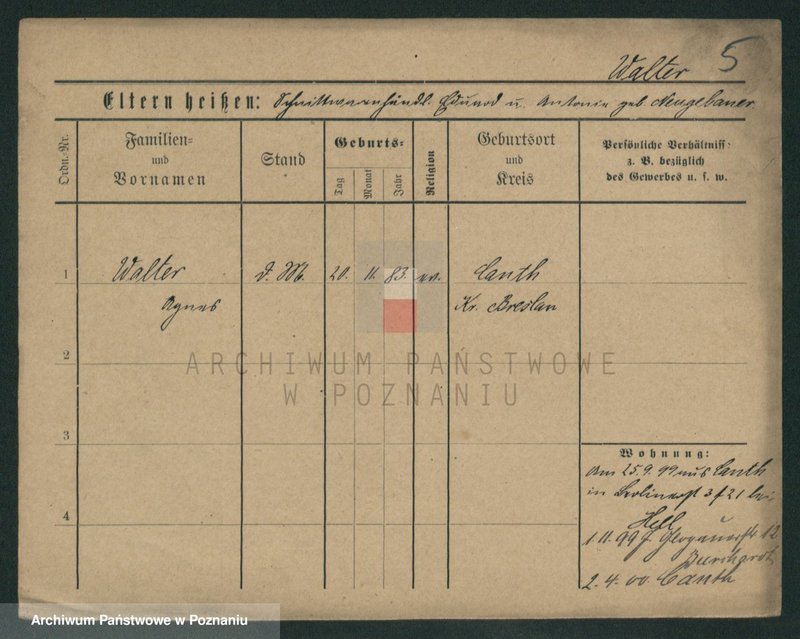 Walter 5
Eltern heißen: Schnittwarenhändl. Eduard u. Antonie geb. Neugebauer
Ordn.-Nr.
Familien-
und
Vornamen
Stand
Geburts-
Tag
Monat
Jahr
Religion
Geburtsort
und
Kreis
Persönliche Verhältniss:
z. B. bezüglich
des Gewerbes u. s. w.
1 Walter d. M. 20. 11. 83. ev. Canth
Agnes Kr. Breslau
2
3
4
Wohnung:
Am 25.9.99 aus Canth
in Berlinerst 3 f 21 bei
Hell
1 11. 99 Glogauerstr. 12
Burchardt
2. 4. 00. Canth
ARCHIWUM PAŃSTWOWE
W POZNANIU
Archiwum Państwowe w Poznaniu